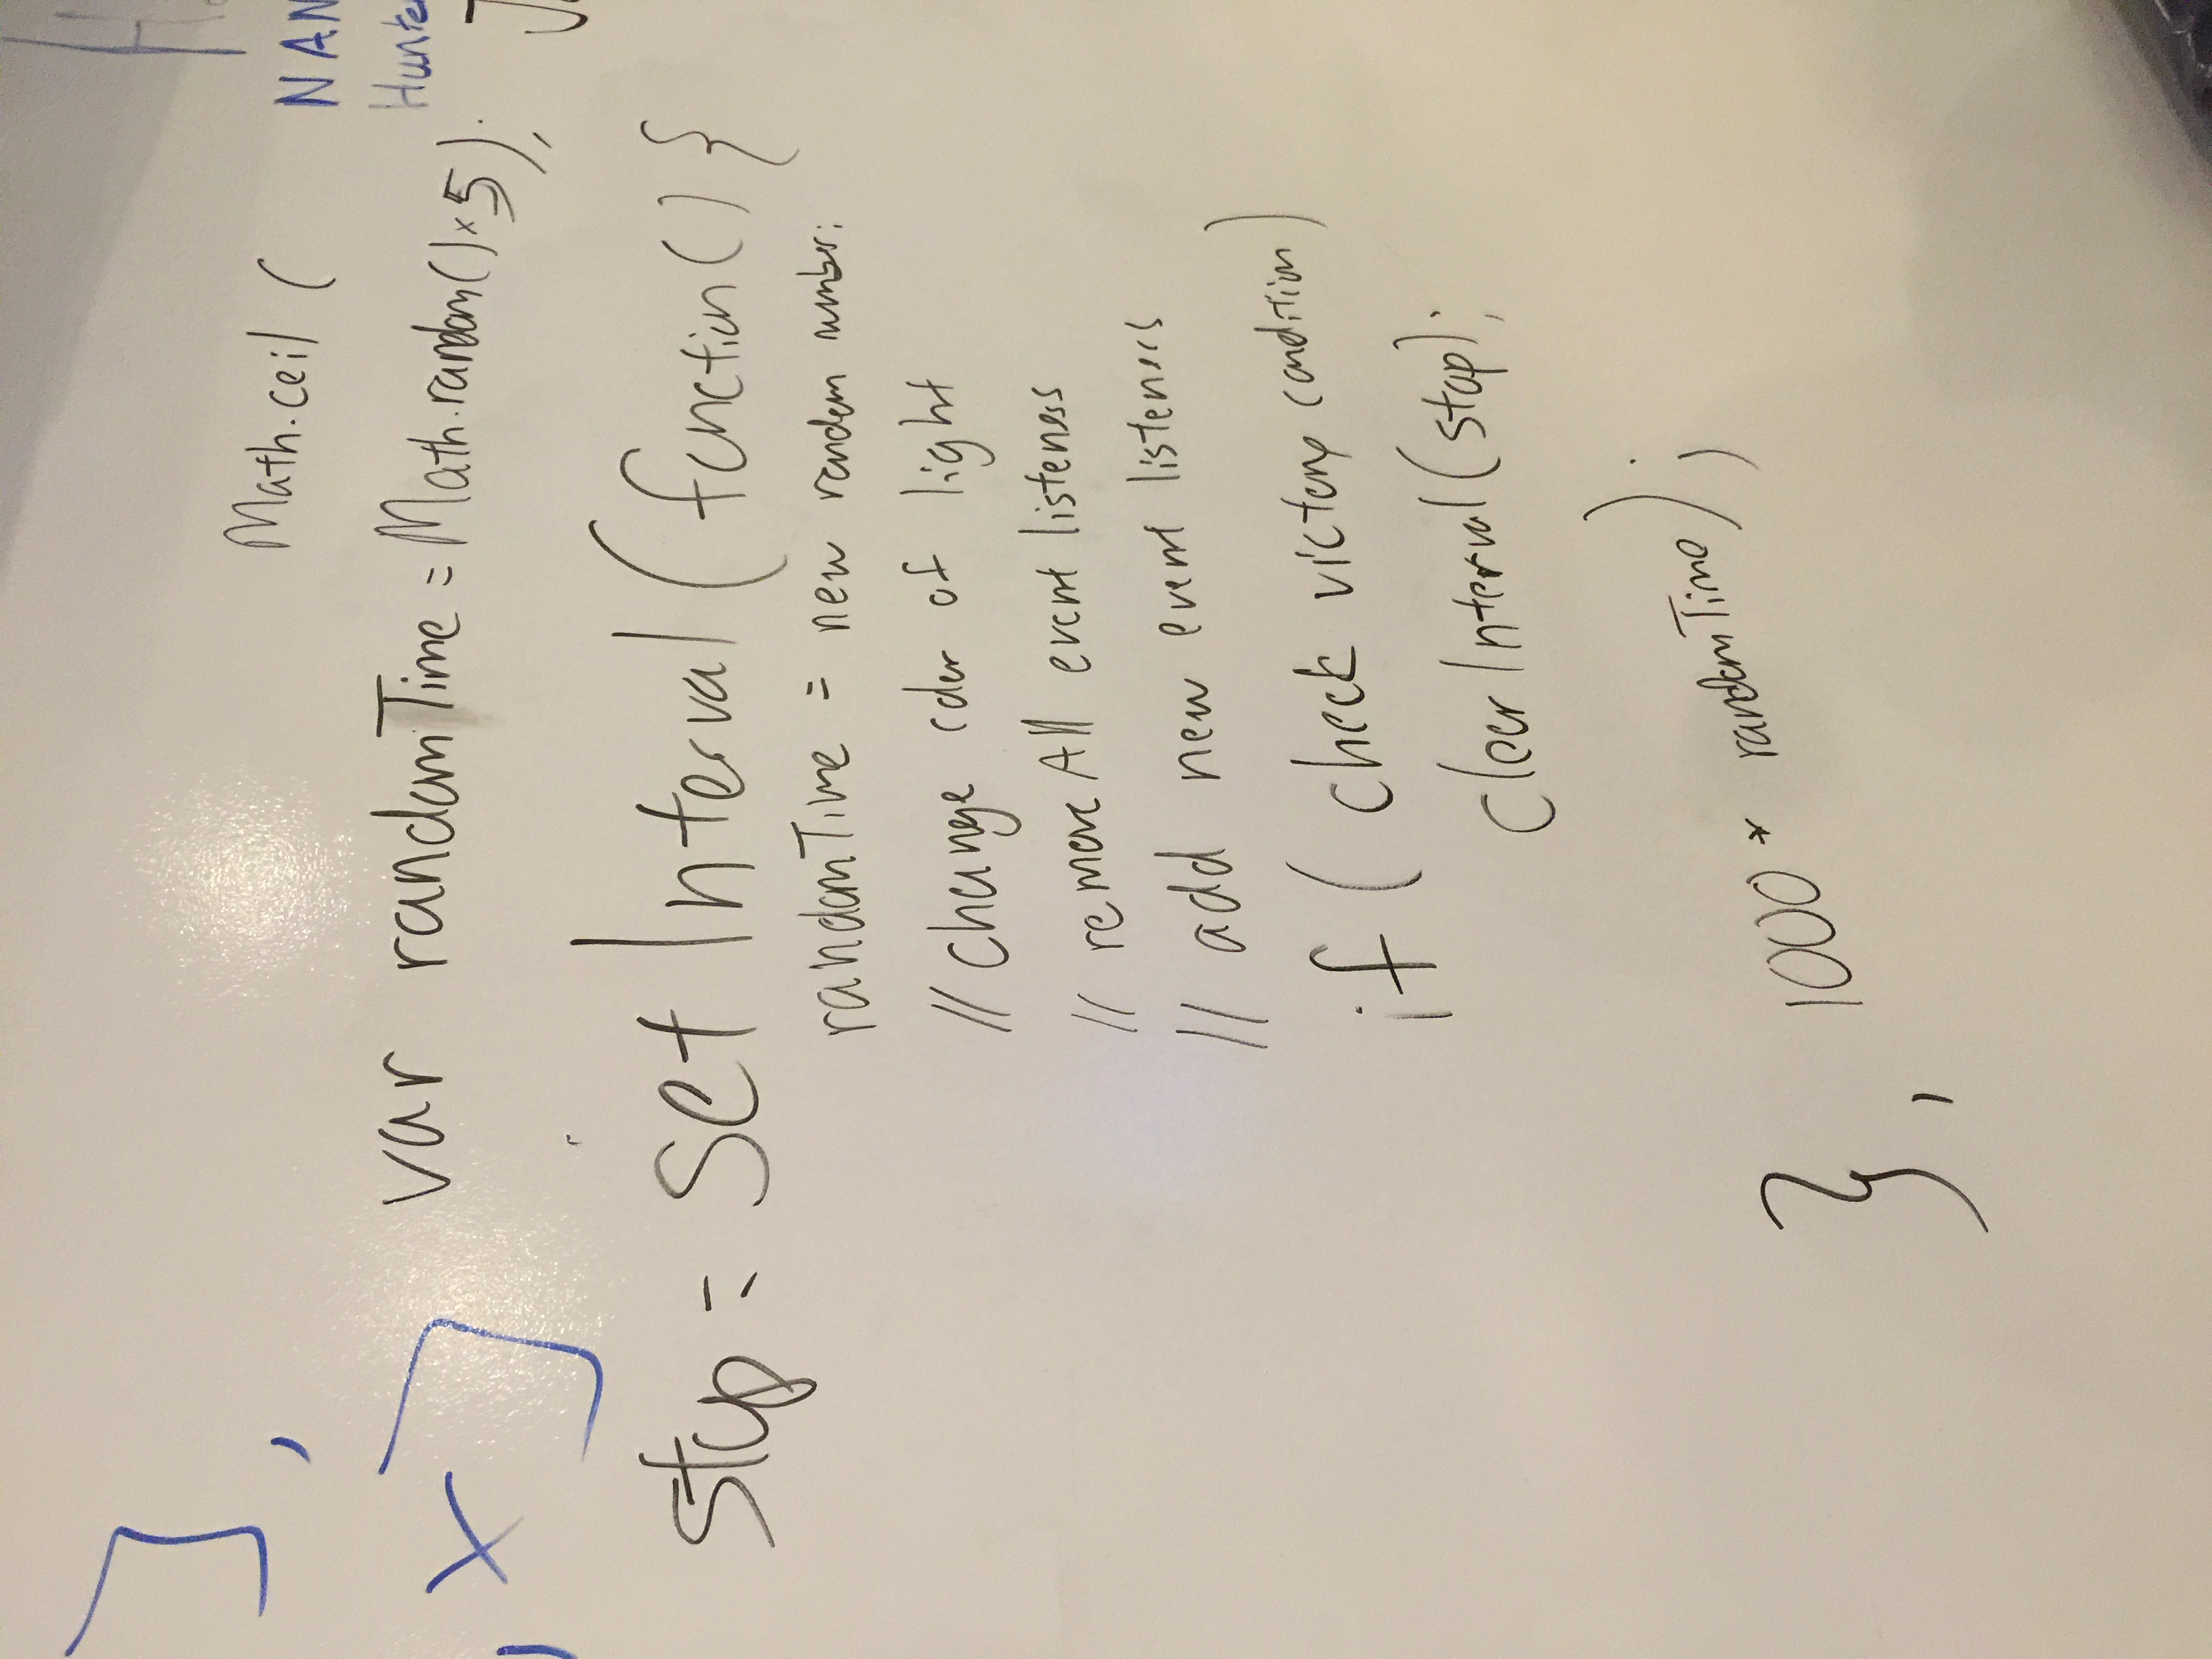 ],
Math.ceil (
NAN
, x]
var randomTime = Math.random() × 5);
Hunte
stop = setInterval (function() {
randomTime = new random number;
// change color of light
// remove All event listeners
// add new event listeners
if ( check victory condition)
clearInterval (stop);
}, 1000 * randomTime);